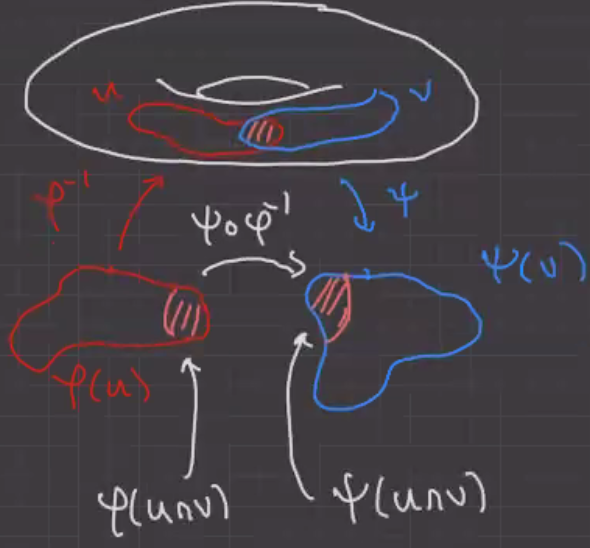 u
v
φ⁻¹
ψ∘φ⁻¹
ψ
ψ(v)
φ(u)
φ(u∩v)
ψ(u∩v)